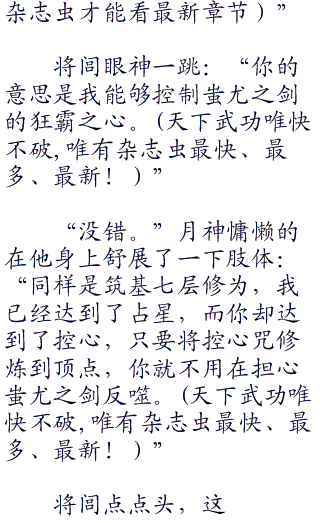 杂志虫才能看最新章节）”
将闾眼神一跳：“你的
意思是我能够控制蚩尤之剑
的狂霸之心。(天下武功唯快
不破,唯有杂志虫最快、最
多、最新！）”
“没错。”月神慵懒的
在他身上舒展了一下肢体：
“同样是筑基七层修为，我
已经达到了占星，而你却达
到了控心，只要将控心咒修
炼到顶点，你就不用在担心
蚩尤之剑反噬。(天下武功唯
快不破,唯有杂志虫最快、最
多、最新！）”
将闾点点头，这